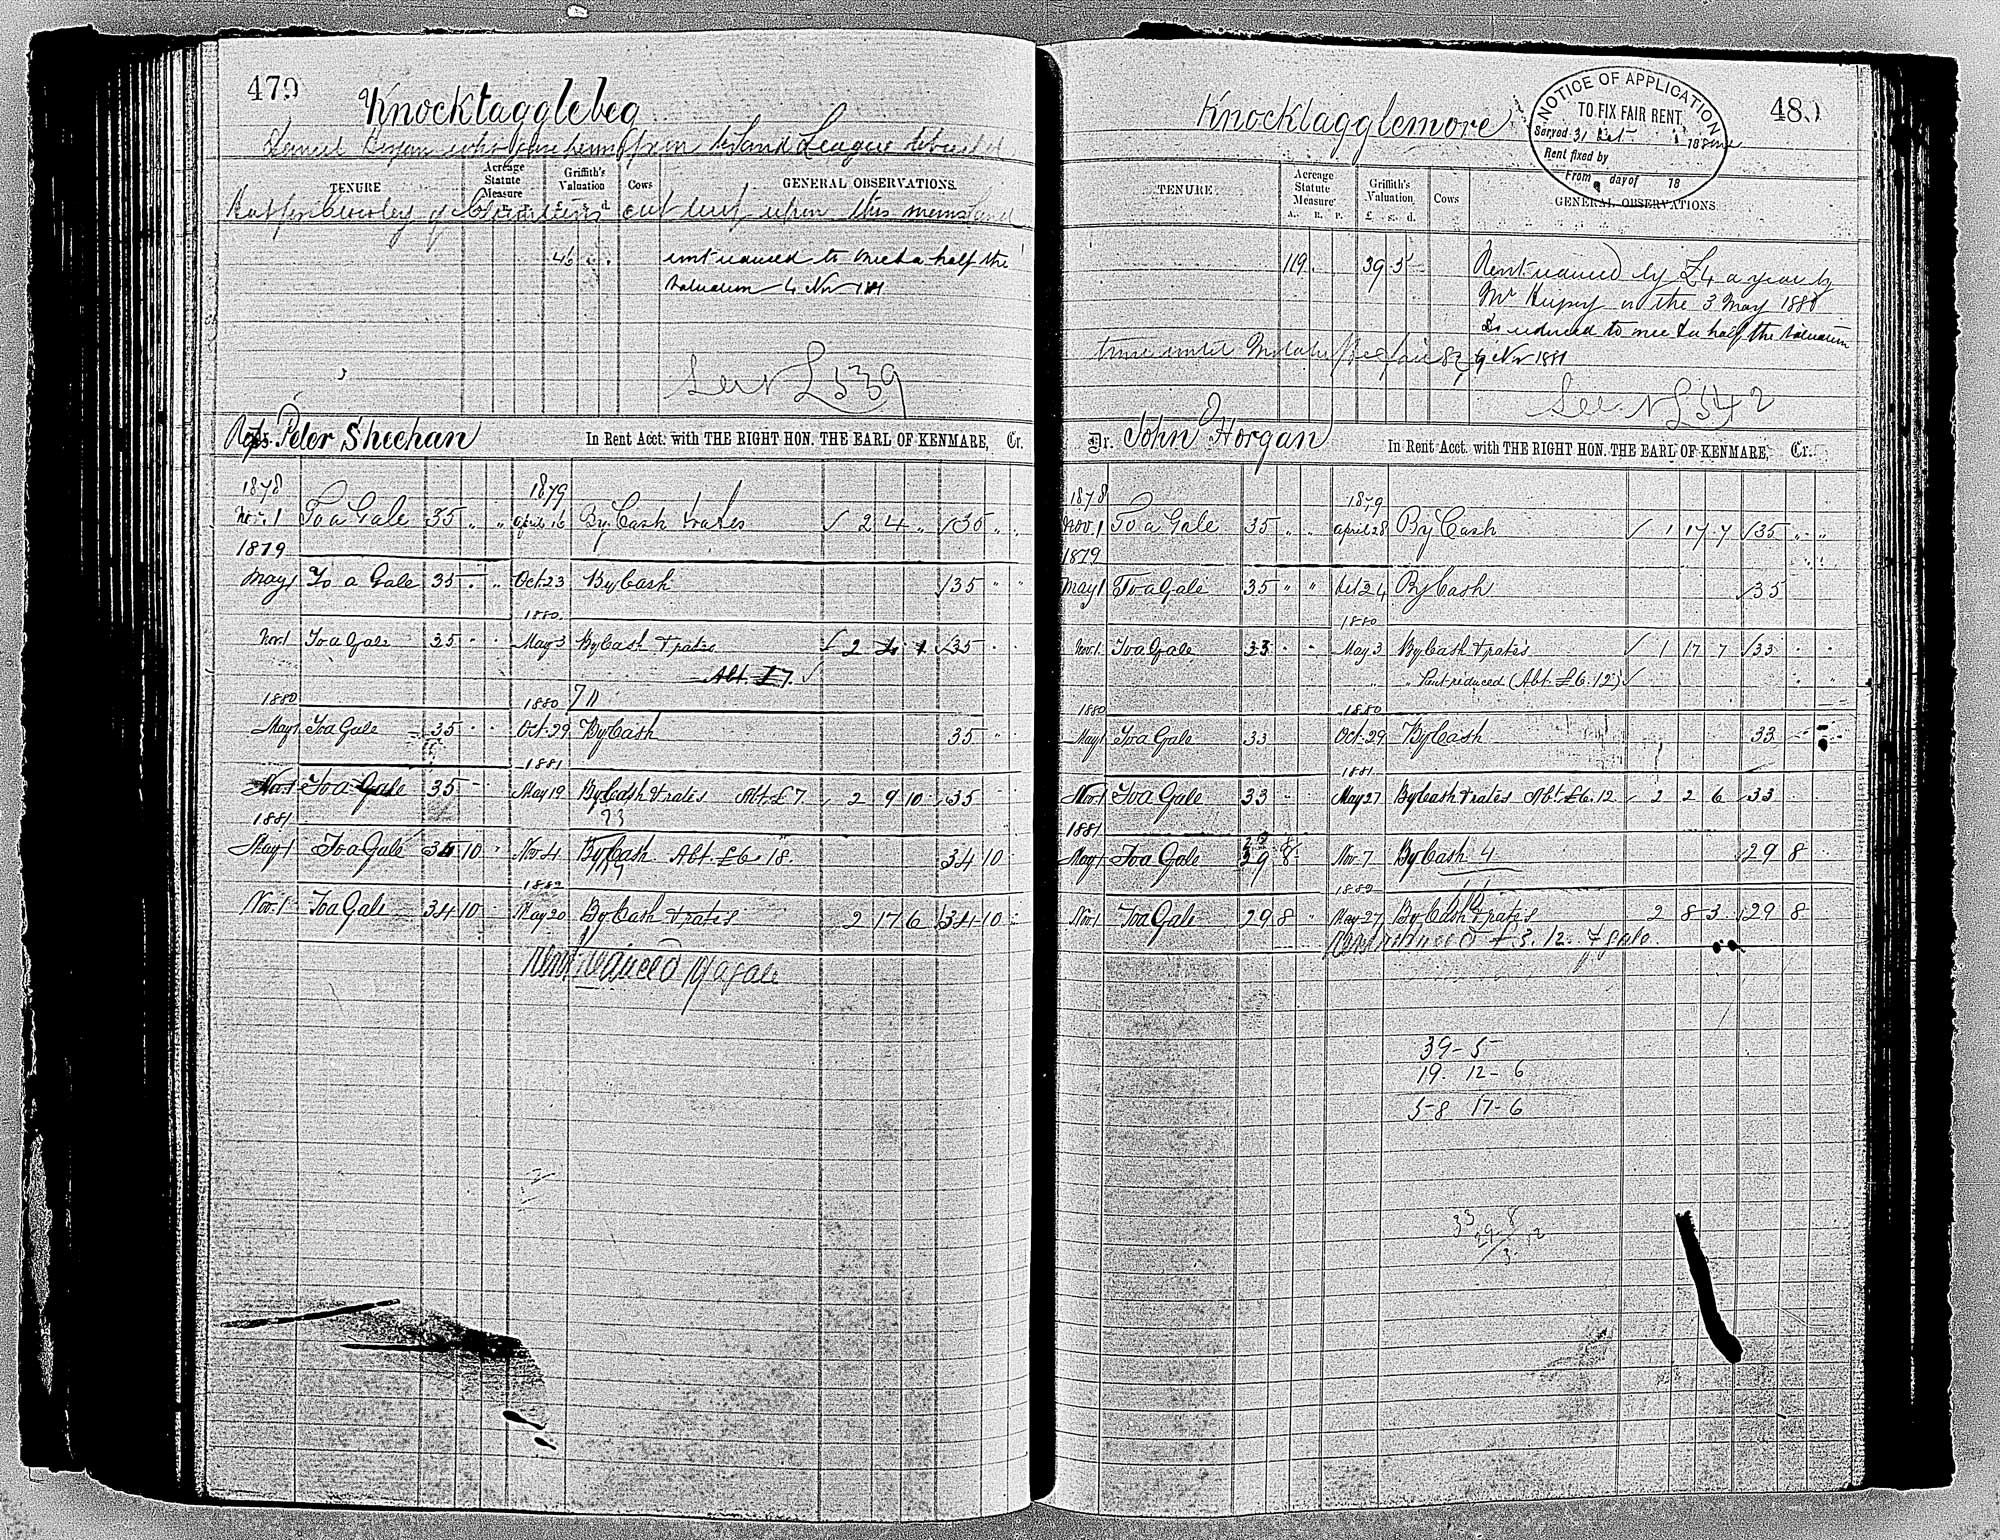 479
Knocktagglebeg
Daniel who from Land League
TENURE
Acreage Statute Measure
Griffith's Valuation
£ s. d.
Cows
GENERAL OBSERVATIONS.
of cut turf upon this mans land
46
reduced to once & a half the
valuation 4 Nov 1881
See N L 539
Reps. Peter Sheehan In Rent Acct. with THE RIGHT HON. THE EARL OF KENMARE, Cr.
1878 1879
Nov. 1 To a Gale 35 " " April 16 By Cash & rates √ 2 4 " √35 " "
1879
May 1 To a Gale 35 " " Oct. 23 By Cash √35 " "
1880
Nov 1 To a Gale 35 " " May 3 By Cash & rates √ 2 √35 " "
Abt. £7. √
1880 1880
May 1 To a Gale 35 Oct. 29 By Cash 35 " "
1881
Nov. 1 To a Gale 35 May 19 By Cash & rates Abt. £7. √ 2 9 10 √35
1881
May 1 To a Gale 34 10 Nov. 4 By Cash Abt. £6. 18. 34 10
1882
Nov. 1 To a Gale 34 10 May 20 By Cash & rates 2 17 6 √34 10
Rent reduced of a gale
480
Knocktagglemore
NOTICE OF APPLICATION
TO FIX FAIR RENT
Served 31 Oct 188
Rent fixed by
From day of 18
TENURE
Acreage Statute Measure
A. R. P.
Griffith's Valuation
£ s. d.
Cows
GENERAL OBSERVATIONS.
119 39 5 Rent reduced by £4 a year by
Mr Hussey on the 3 May 1880
Do reduced to once & a half the valuation
time until 9 Nov 1881
See N L 542
Dr. John Horgan In Rent Acct. with THE RIGHT HON. THE EARL OF KENMARE, Cr.
1878 1879
Nov. 1 To a Gale 35 " " April 28 By Cash √ 1 17 7 √35 " "
1879
May 1 To a Gale 35 " " Oct 24 By Cash √35
1880
Nov. 1 To a Gale 33 " " May 3 By Cash & rates √ 1 17 7 √33 " "
" Rent reduced (Abt. £6. 12) √
1880 1880
May 1 To a Gale 33 Oct. 29 By Cash 33
1881
Nov. 1 To a Gale 33 May 27 By Cash & rates Abt. £6. 12 √ 2 2 6 √33
1881
May 1 To a Gale 29 8 Nov. 7 By Cash 4 √29 8
1882
Nov. 1 To a Gale 29 8 " May 27 By Cash & rates 2 8 3 √29 8
Rent reduced £3. 12. gale
39 - 5
19. 12 - 6
58 17 - 6
33
29 8
3. 12